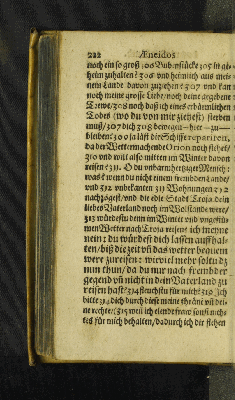 222 Æneidos
noch ein so groß 305 Bubenstücke 305 in ge-
heim zuhalten? 306 und heimlich aus mei-
nem Lande davon zuziehen? 307 und kan
noch meine grosse Liebe/ noch deine gegebene
Trewe/ 308 noch daß ich eines erbärmlichen
Todes (wo du von mir ziehest) sterben
muß/ 307 dich 308 bewegen hier zu
bleiben? 309 ja läst die Schiffe reparieren,
da das Wetter machende Orion noch stehet/
310 und wilt also mitten im Winter davon
reisen 311. O du unbarmhertziger Mensch!
was? wenn du nicht einem frembden Lande/
und 312 unbekanten 311 Wohnungen 312
nachzögest/ und die edle Stadt Troja dein
liebes Vaterland noch im Wolstande were/
313 würdestu denn im Winter und ungestü-
men Wetter nach Troja reisen? ich meyne
nein: du würdest dich lassen auffhal-
ten/ biß die zeit und das wetter bequem
were zureisen: wie viel mehr soltu dz
nun thun/ da du nur nach frembder
gegend und nicht in dein Vaterland zu
reisen hast? 314 fleuchstu für mich? 315 Ich
bitte 314 dich durch diese meine thräne und dei-
ne rechte/ (315 weil ich elende fraw sonst nich-
tes für mich behalten/ dadurch ich dir flehen